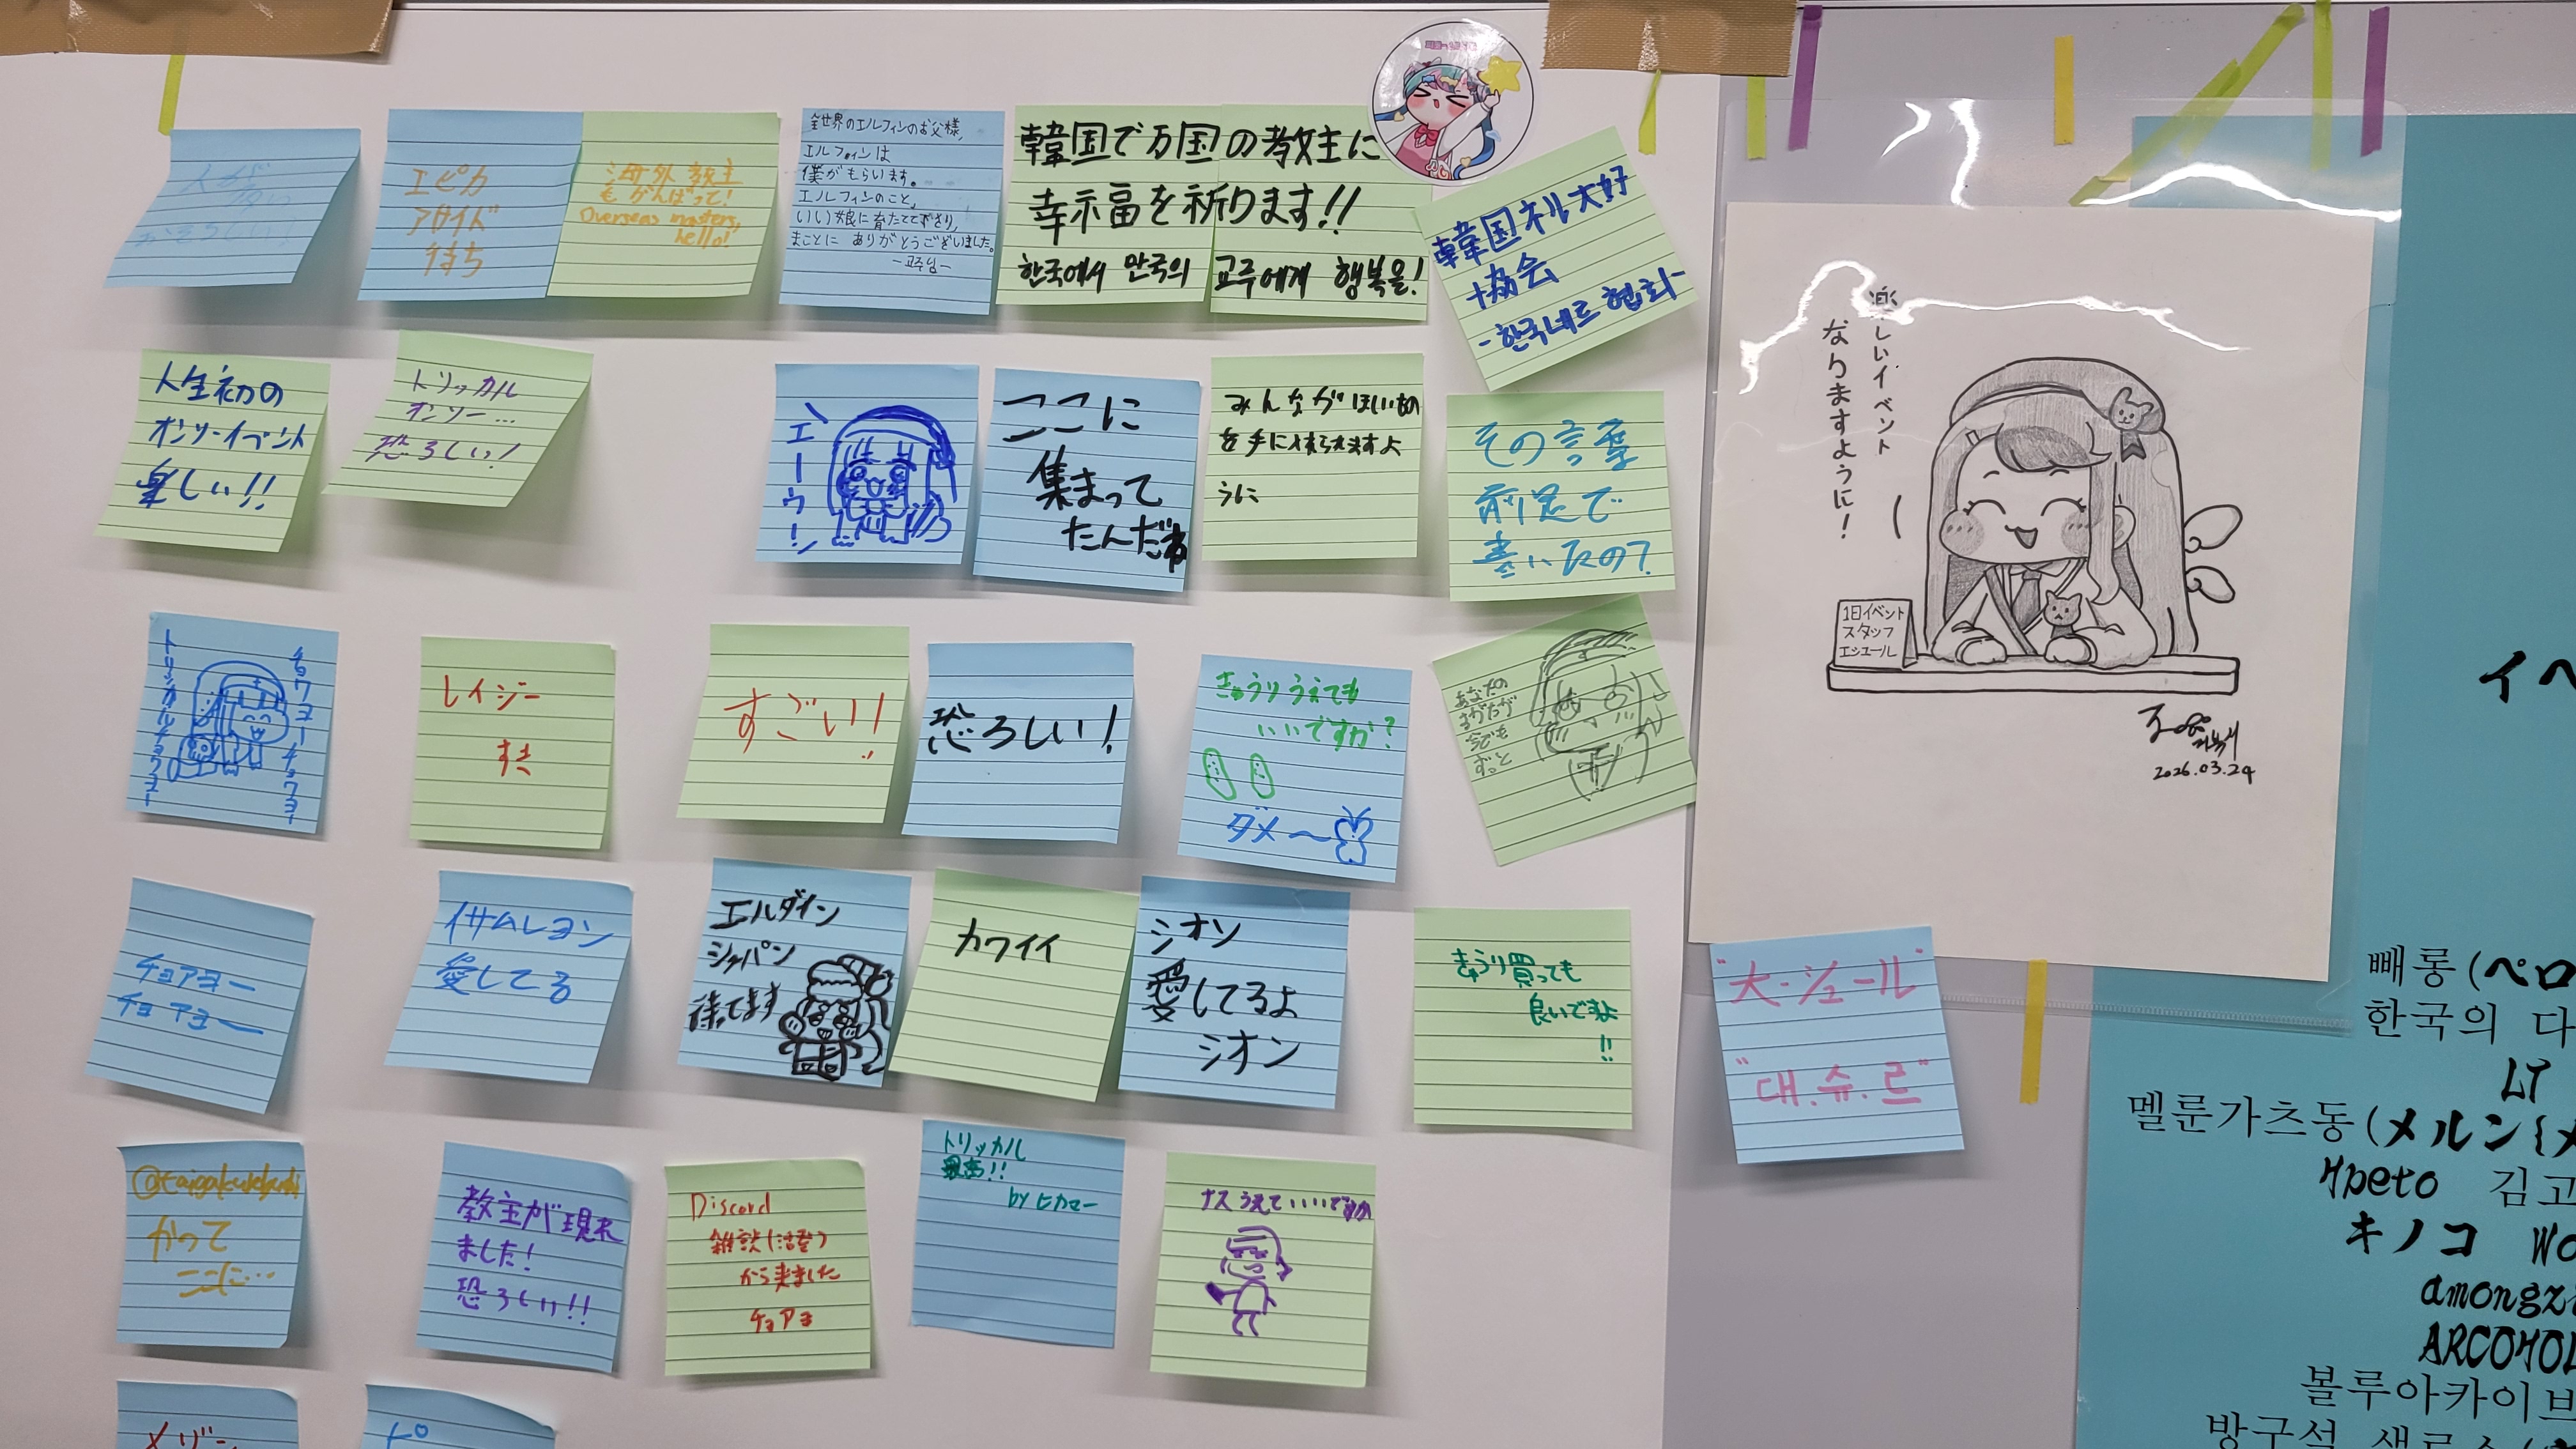 エピカ
アサイド
待ち
海外教主
もがんばって!
Overseas masters,
hello!
全世界のエルフィンのお父様,
エルフィンは
僕がもらいます。
エルフィンのこと、
いい娘に育ててくださり,
まことに ありがとうございました。
-교주님-
韓国で万国の教主に
幸福を祈ります!!
한국에서 만국의 교주에게 행복을!
韓国ネル大好
協会
-한국네르협회-
人生初の
オンリーイベント
楽しい!!
トリッカル
オンリー…
恐ろしい!
エーウ!
ここに
集まって
たんだね
みんながほしいもの
を手に入れられますよ
うに
その言葉
前足で
書いたの?
楽しいイベント
なりますように!
1日イベント
スタッフ
エシュール
2026.03.24
レイジー
すき
すごい!
恐ろしい!
きゅうりうえても
いいですか?
ダメ〜
あなたの
今でも
ずっと
チョアヨー
チョアヨー
イサムレヨン
愛してる
エルダイン
ジャパン
待ってます
カワイイ
シオン
愛してるよ
シオン
きゅうり買っても
良いですよ
!!
"大・シュール"
"대.슈.르"
かって
ここに…
教主が現れ
ました!
恐ろしい!!
Discord
雑談(活発)
から来ました
チョアヨ
トリッカル
最高!!
by ヒカマー
ナスうえていいですか
イベ
빼롱(ペロ
한국의 다
LT
멜룬가츠동(メルン{メ
4peto 김고
キノコ Wo
amongz
ARCOHOL
볼루아카이브